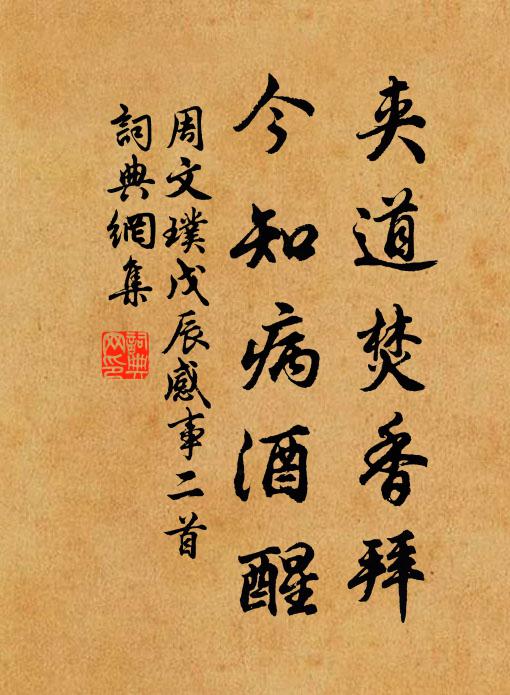 夾道焚香拜
今知病酒醒
周文璞戊辰感事二首
詞典網集
詞典網印